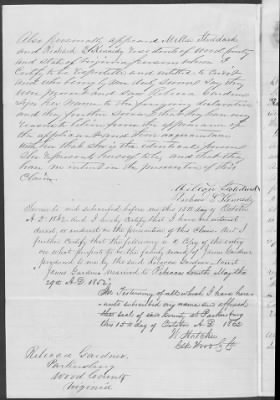 Also personally appeared Miller Stoddard
and Richard S Kennedy residents of Wood County
and State of Virginia persons whom I
Certify to be respectable and entitled to credit
and who being by me duly sworn say they
were present and saw Rebecca Gardner
sign her name to the foregoing declaration
and they further swear that they have every
reason to believe from the appearance of
the applicant and their acquaintance
with her that she is the identical person
she represents herself to be, and that they
have no interest in the prosecution of this
Claim.
Sworn to and subscribed before me this 15th day of October
A.D. 1862. And I hereby certify that I have no interest
direct or indirect in the prosecution of this Claim. And I
further certify that the following is a Copy of the entry
on what purports to be the family record of James Gardner
produced to me by the said Rebecca Gardner, to wit
James Gardner married to Rebecca Smith May the
29th A.D. 1852.
In Testimony of all which I have here-
unto subscribed my name and affixed
the seal of said County at Parkersburg
this 15th day of October A.D. 1862
Rebecca Gardner,
Parkersburg
Wood County
Virginia